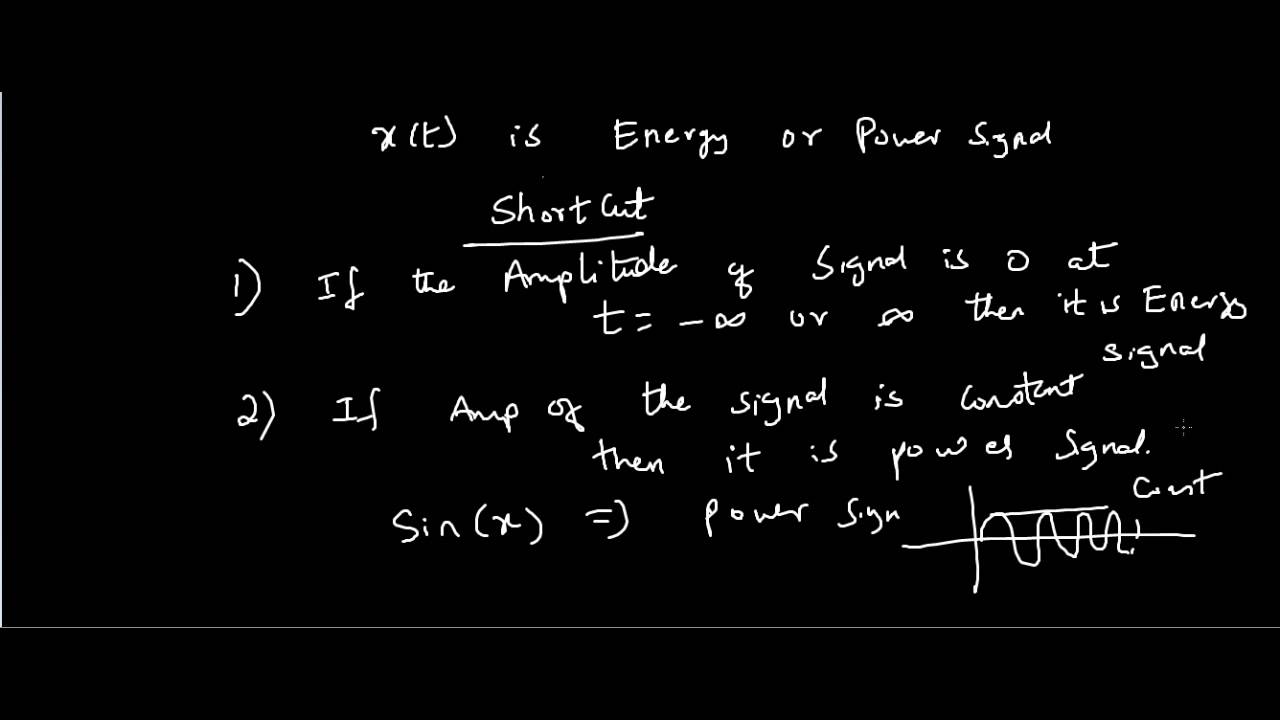 x(t) is Energy or Power Signal
Short Cut
1) If the Amplitude of Signal is 0 at
t = -∞ or ∞ then it is Energy
signal
2) If Amp of the signal is constant
then it is power Signal.
Const
Sin(x) => Power Sign